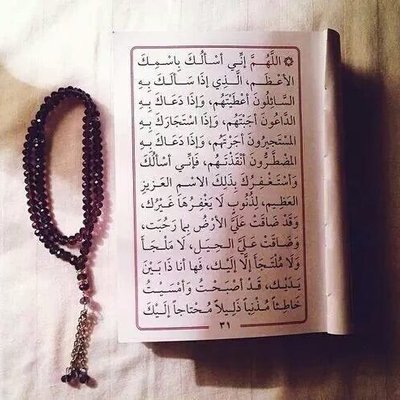 ۞ اللَّهُمَّ إِنِّي أَسْأَلُكَ بِاسْمِكَ
الأَعْظَمِ، الَّذِي إِذَا سَأَلَكَ بِهِ
السَّائِلُونَ أَعْطَيْتَهُم، وَإِذَا دَعَاكَ بِهِ
الدَّاعُونَ أَجَبْتَهُم، وَإِذَا اسْتَجَارَكَ بِهِ
المُسْتَجِيرُونَ أَجَرْتَهُم، وَإِذَا دَعَاكَ بِهِ
المُضْطَرُّونَ أَنْقَذْتَهُم، فَإِنِّي أَسْأَلُكَ
وَأَسْتَغْفِرُكَ بِذَلِكَ الاسْمِ العَزِيزِ
العَظِيمِ، لِذُنُوبٍ لَا يَغْفِرُهَا غَيْرُكَ،
وَقَدْ ضَاقَتْ عَلَيَّ الأَرْضُ بِمَا رَحُبَتْ،
وَضَاقَتْ عَلَيَّ الحِيَلُ، لَا مَلْجَأَ
وَلَا مُلْتَجَأَ إِلَّا إِلَيْكَ، فَهَا أَنا ذَا بَيْنَ
يَدَيْكَ، قَدْ أَصْبَحْتُ وَأَمْسَيْتُ
خَاطِئاً مُذْنِباً ذَلِيلاً مُحْتَاجاً إِلَيْكَ
٣١